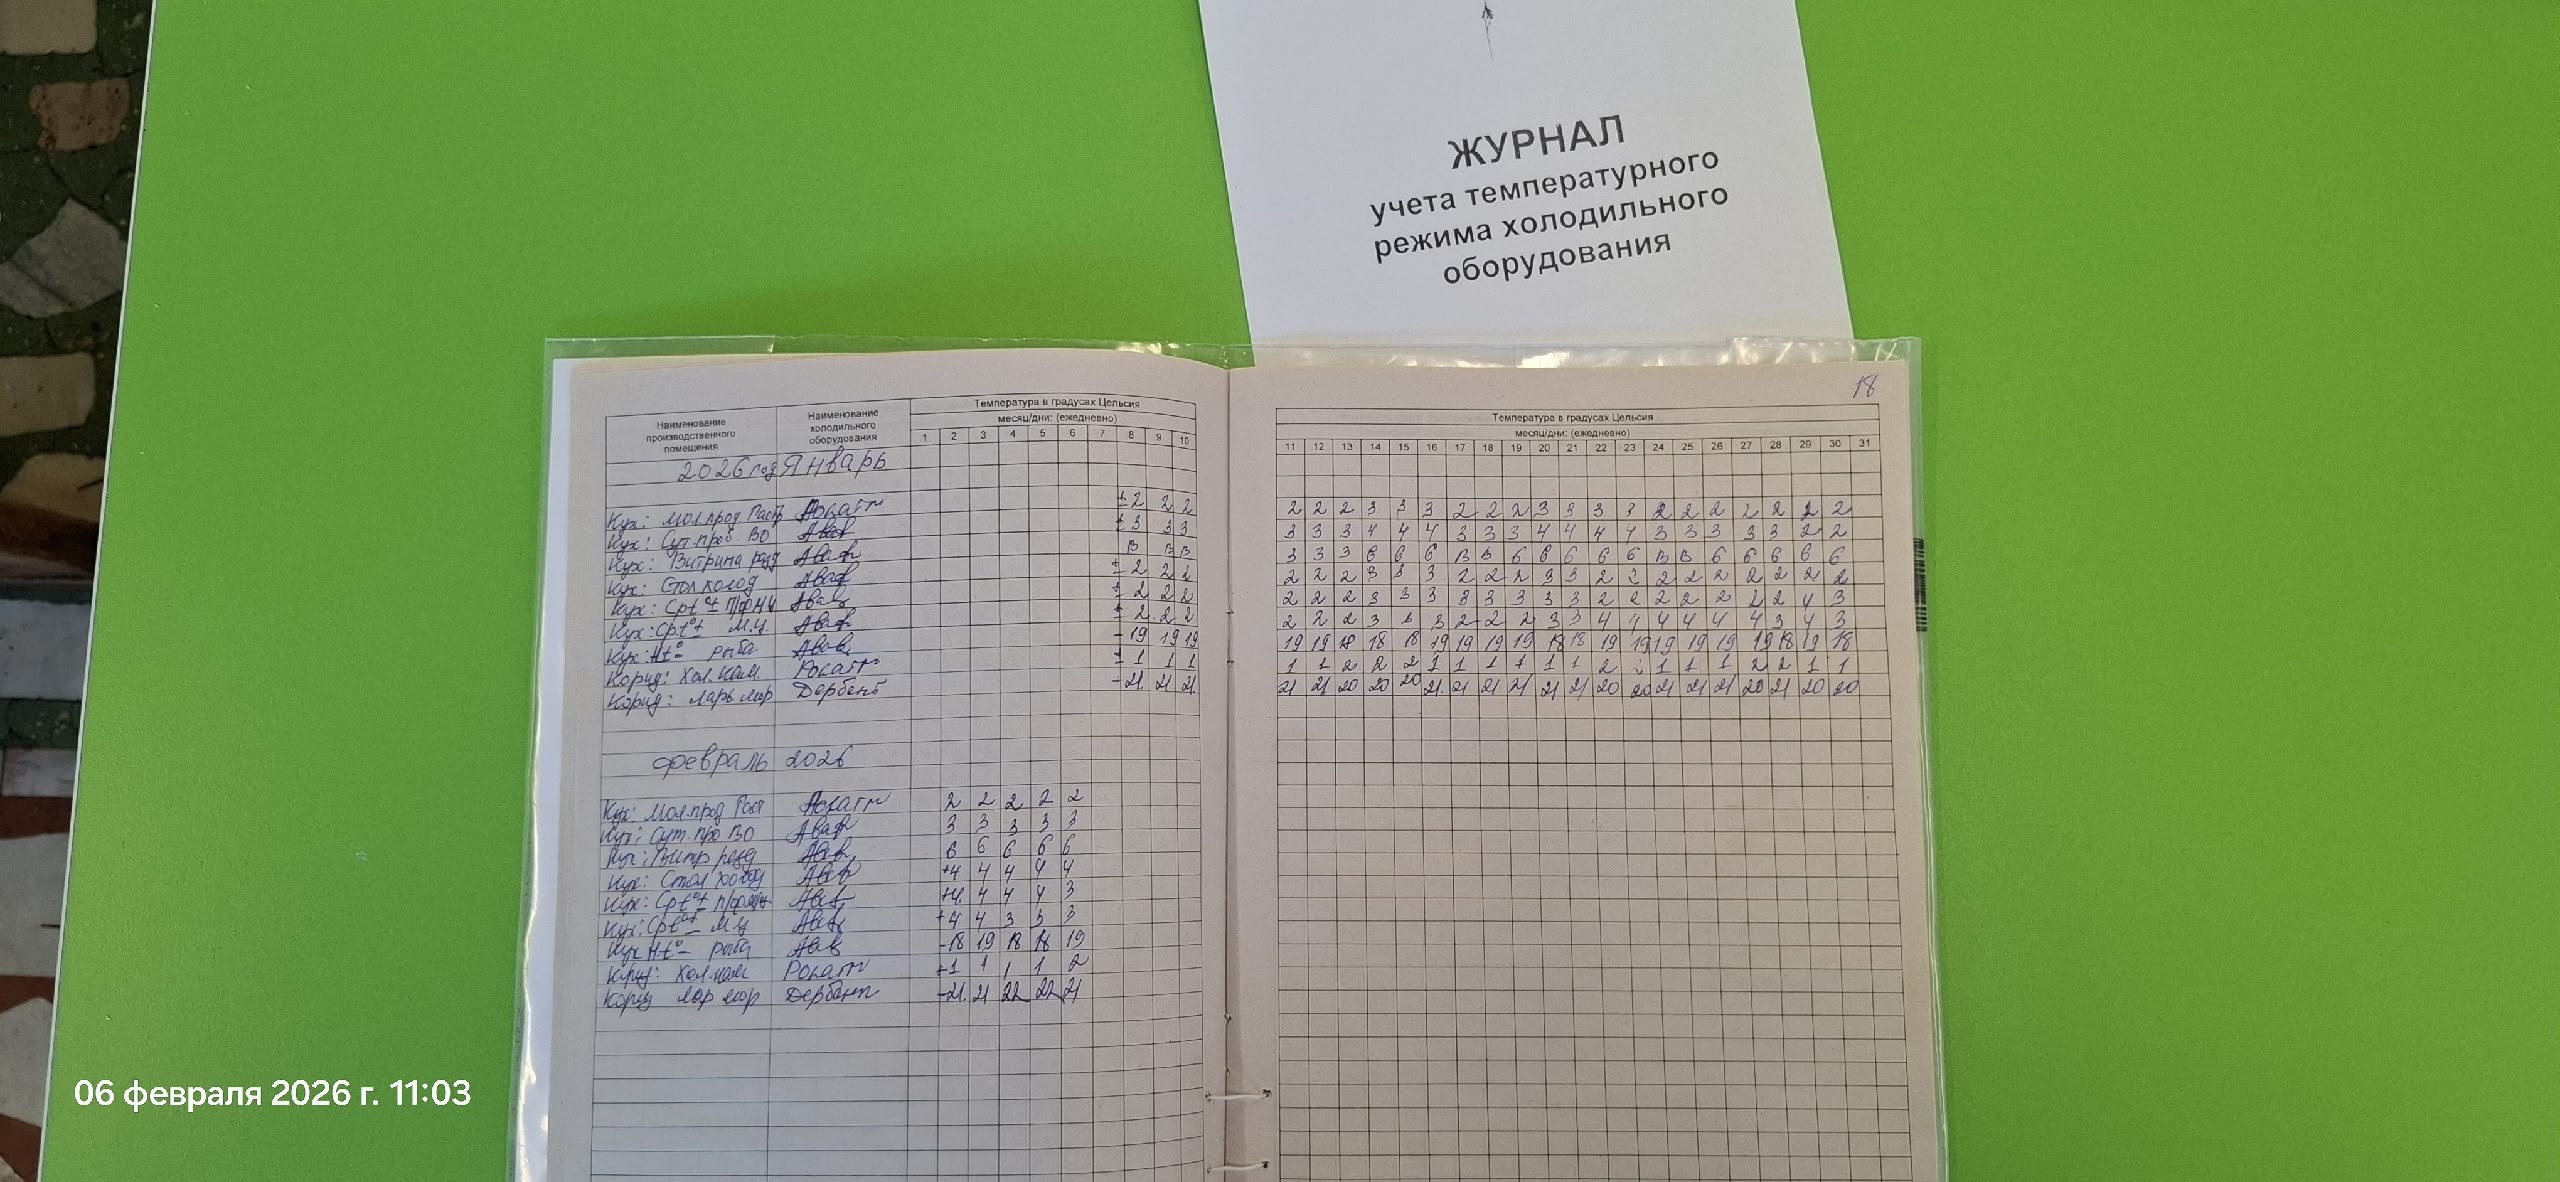 ЖУРНАЛ
учета температурного
режима холодильного
оборудования
18
Наименование производственного помещения Наименование холодильного оборудования Температура в градусах Цельсия
месяц/дни: (ежедневно)
1 2 3 4 5 6 7 8 9 10
Температура в градусах Цельсия
месяц/дни: (ежедневно)
11 12 13 14 15 16 17 18 19 20 21 22 23 24 25 26 27 28 29 30 31
2026 год Январь
Кух: Мол.прод Раст ±2 2 2 2 2 2 3 3 3 2 2 2 3 3 3 3 2 2 2 2 2 2 2
Кух: Сут.проб ВО ±3 3 3 3 3 3 4 4 4 3 3 3 4 4 4 4 3 3 3 3 3 2 2
Кух: Витрина
Кух: Стол холод ±2 2 2 2 2 2 3 3 3 2 2 2 3 3 2 2 2 2 2 2 2 2 2
Кух: Ср t° ± ±2 2 2 2 2 2 3 3 3 3 3 3 3 3 2 2 2 2 2 2 2 4 3
Кух: Ср.t° ± М.Ц ±2 2 2 2 2 2 3 3 3 2 2 2 3 3 4 4 4 4 4 4 3 4 3
Кух: Нt°- рыба -19 19 19 19 19 18 18 18 19 19 19 19 18 18 19 19 19 19 19 19 18 19 18
Корид: Хол.кам. ±1 1 1 1 1 2 2 2 1 1 1 1 1 1 2 2 1 1 1 2 2 1 1
Корид: ларь мор Дербент -21 21 21 21 21 20 20 20 21 21 21 21 21 21 20 20 21 21 21 20 21 20 20
февраль 2026
Кух: Мол.прод 2 2 2 2 2
Кух: Сут.про ВО 3 3 3 3 3
6 6 6 6 6
Кух: Стол холод +4 4 4 4 4
Кух: Ср t° ± +4 4 4 4 3
Кух: Ср t° ± М.Ц +4 4 3 3 3
Кух Нt°- рыба -18 19 18 18 19
Хол.кам +1 1 1 1 2
Корид Лар мор Дербент -21 21 22 22 21
06 февраля 2026 г. 11:03